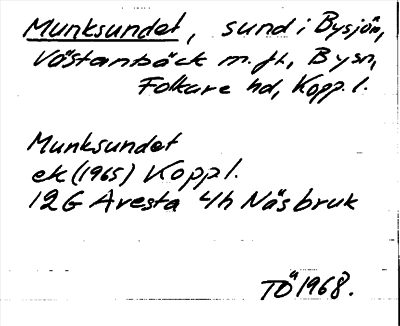 Munksundet, sund i Bysjön,
Västanbäck m.fl., By sn,
Folkare hd, Kopp.l.
Munksundet
ek (1965) Kopp.l.
12G Avesta 4h Näsbruk
TÖ 1968.